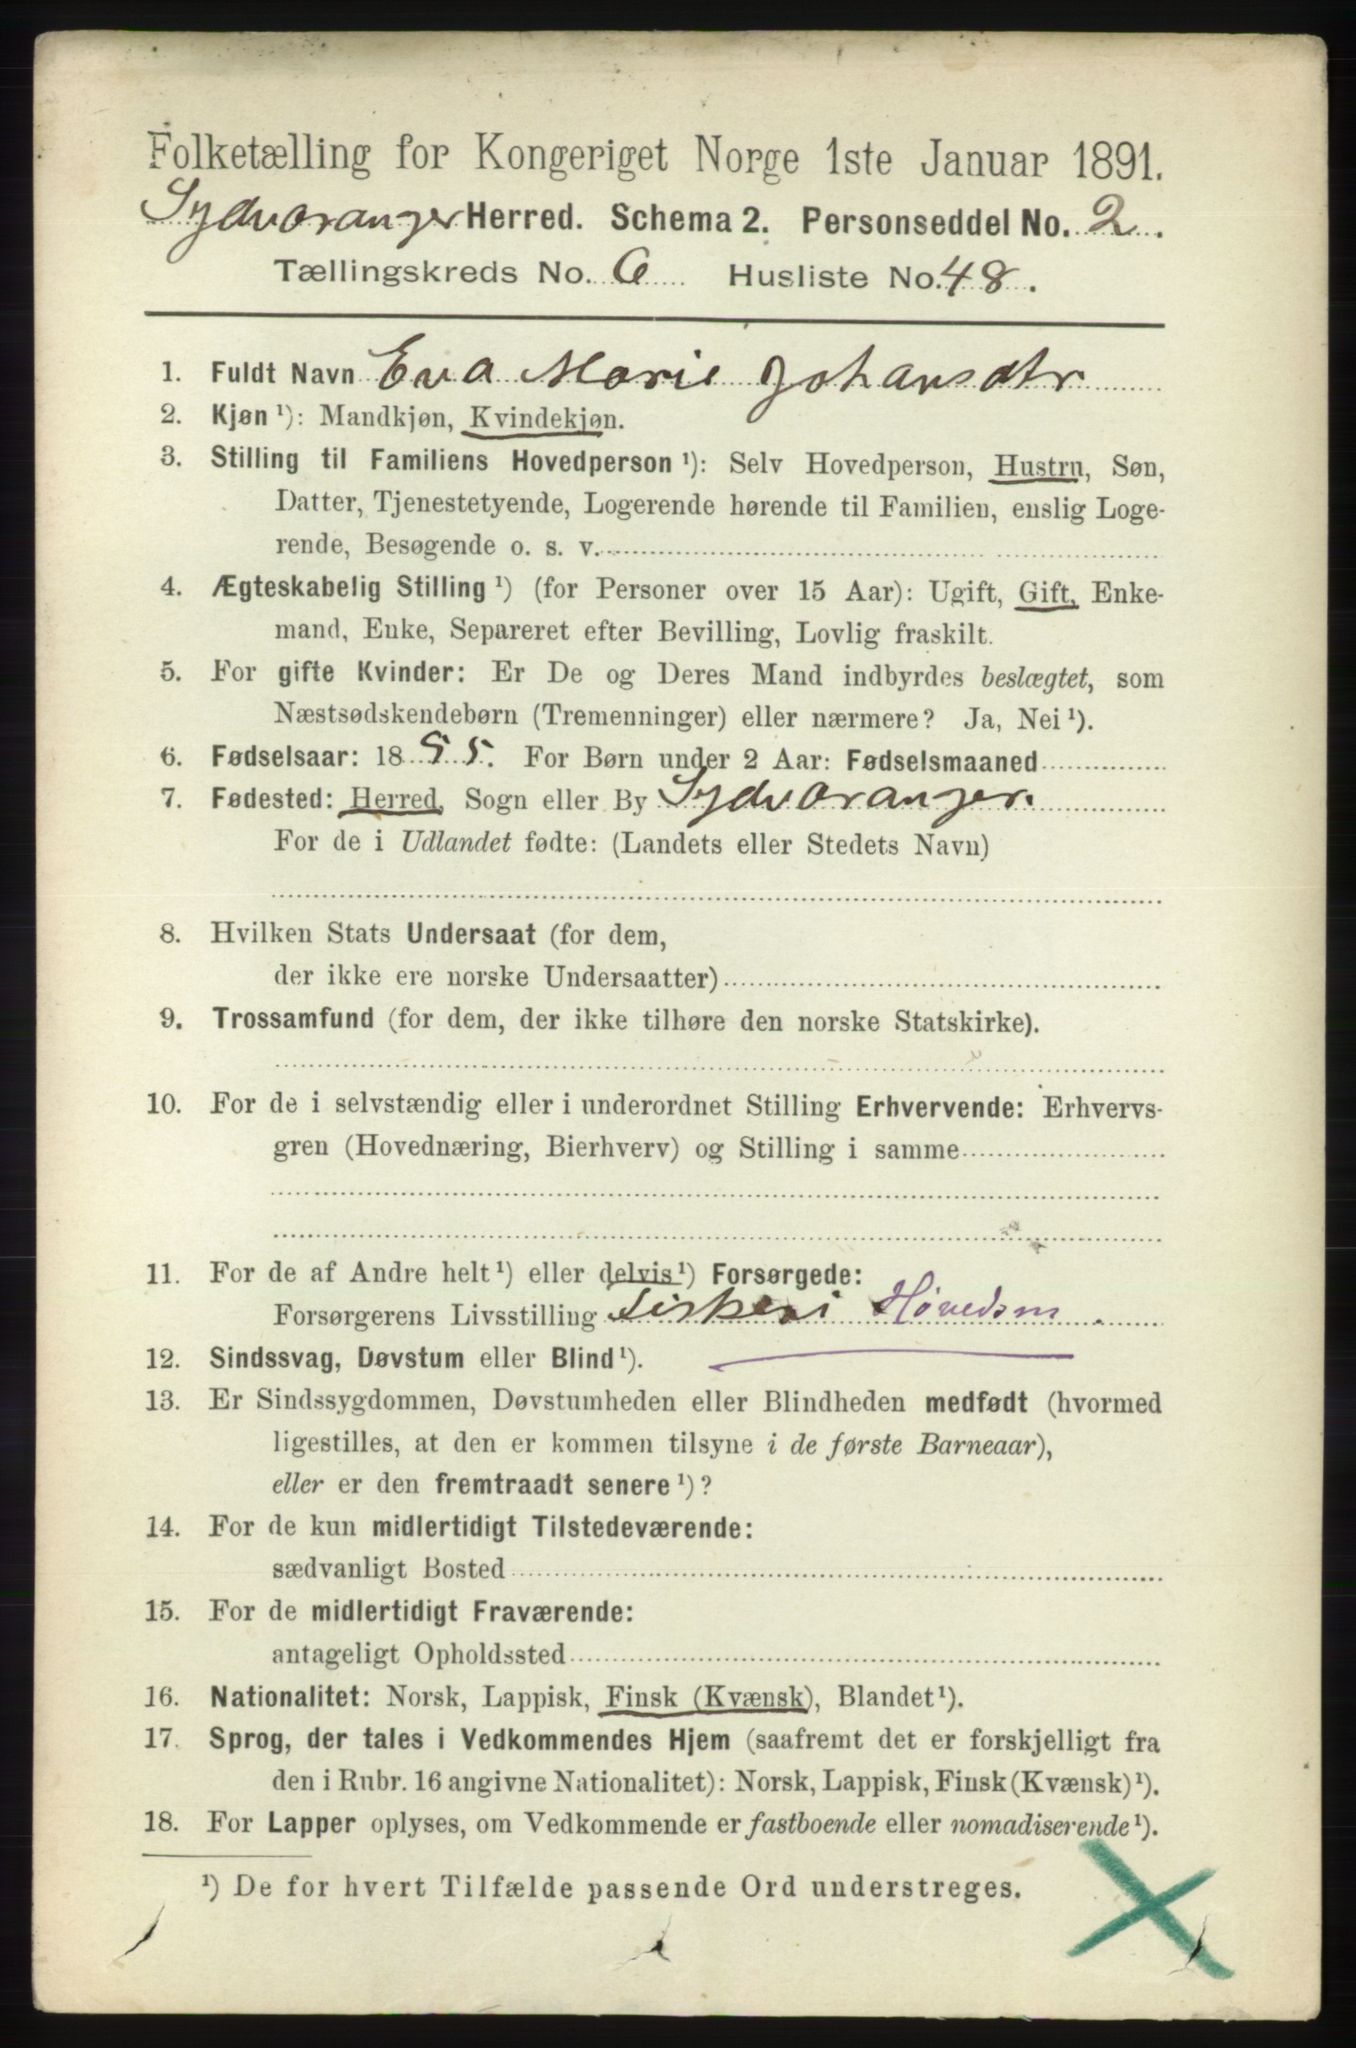 Folketælling for Kongeriget Norge 1ste Januar 1891.
Sydvaranger Herred. Schema 2. Personseddel No. 2.
Tællingskreds No. 6 Husliste No. 48.
1. Fuldt Navn Eva Marie Johansdtr.
2. Kjøn ¹): Mandkjøn, Kvindekjøn.
3. Stilling til Familiens Hovedperson ¹): Selv Hovedperson, Hustru, Søn,
Datter, Tjenestetyende, Logerende hørende til Familien, enslig Loge-
rende, Besøgende o. s. v.
4. Ægteskabelig Stilling ¹) (for Personer over 15 Aar): Ugift, Gift, Enke-
mand, Enke, Separeret efter Bevilling, Lovlig fraskilt.
5. For gifte Kvinder: Er De og Deres Mand indbyrdes beslægtet, som
Næstsødskendebørn (Tremenninger) eller nærmere? Ja, Nei ¹).
6. Fødselsaar: 1855. For Børn under 2 Aar: Fødselsmaaned
7. Fødested: Herred, Sogn eller By Sydvaranger.
For de i Udlandet fødte: (Landets eller Stedets Navn)
8. Hvilken Stats Undersaat (for dem,
der ikke ere norske Undersaatter)
9. Trossamfund (for dem, der ikke tilhøre den norske Statskirke).
10. For de i selvstændig eller i underordnet Stilling Erhvervende: Erhvervs-
gren (Hovednæring, Bierhverv) og Stilling i samme
11. For de af Andre helt ¹) eller delvis ¹) Forsørgede:
Forsørgerens Livsstilling Fiskeri Høvedsm.
12. Sindssvag, Døvstum eller Blind ¹).
13. Er Sindssygdommen, Døvstumheden eller Blindheden medfødt (hvormed
ligestilles, at den er kommen tilsyne i de første Barneaar),
eller er den fremtraadt senere ¹)?
14. For de kun midlertidigt Tilstedeværende:
sædvanligt Bosted
15. For de midlertidigt Fraværende:
antageligt Opholdssted
16. Nationalitet: Norsk, Lappisk, Finsk (Kvænsk), Blandet ¹).
17. Sprog, der tales i Vedkommendes Hjem (saafremt det er forskjelligt fra
den i Rubr. 16 angivne Nationalitet): Norsk, Lappisk, Finsk (Kvænsk) ¹).
18. For Lapper oplyses, om Vedkommende er fastboende eller nomadiserende ¹).
¹) De for hvert Tilfælde passende Ord understreges.